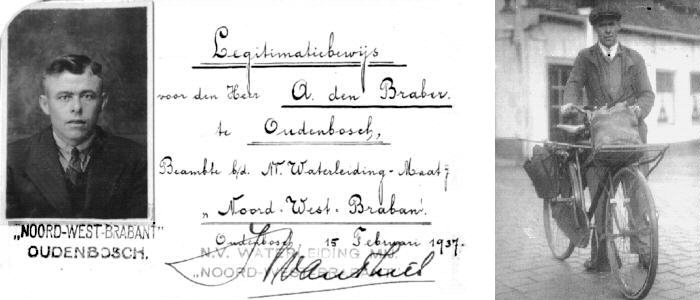 Legitimatiebewijs
voor den Heer A. den Braber.
te Oudenbosch,
Beambte b/d. N.V. Waterleiding-Maatij
„Noord-West-Brabant".
Oudenbosch, 15 Februari 1937.
N.V. WATERLEIDING MIJ.
„NOORD-WEST-BRABANT"
„NOORD-WEST-BRABANT"
OUDENBOSCH.